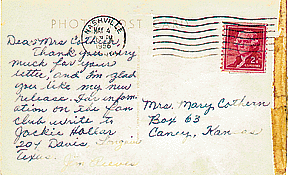 POST CARD
NASHVILLE
MAY 4
1956
Dear Mrs Cothern,
Thank you very
much for your
letter, and I'm glad
you like my new
release. For inform
ation on the fan
club write to
Jackie Hollar
204 Davis,
Texas.
2¢
Mrs. Mary Cothern
Box 63
Caney, Kansas